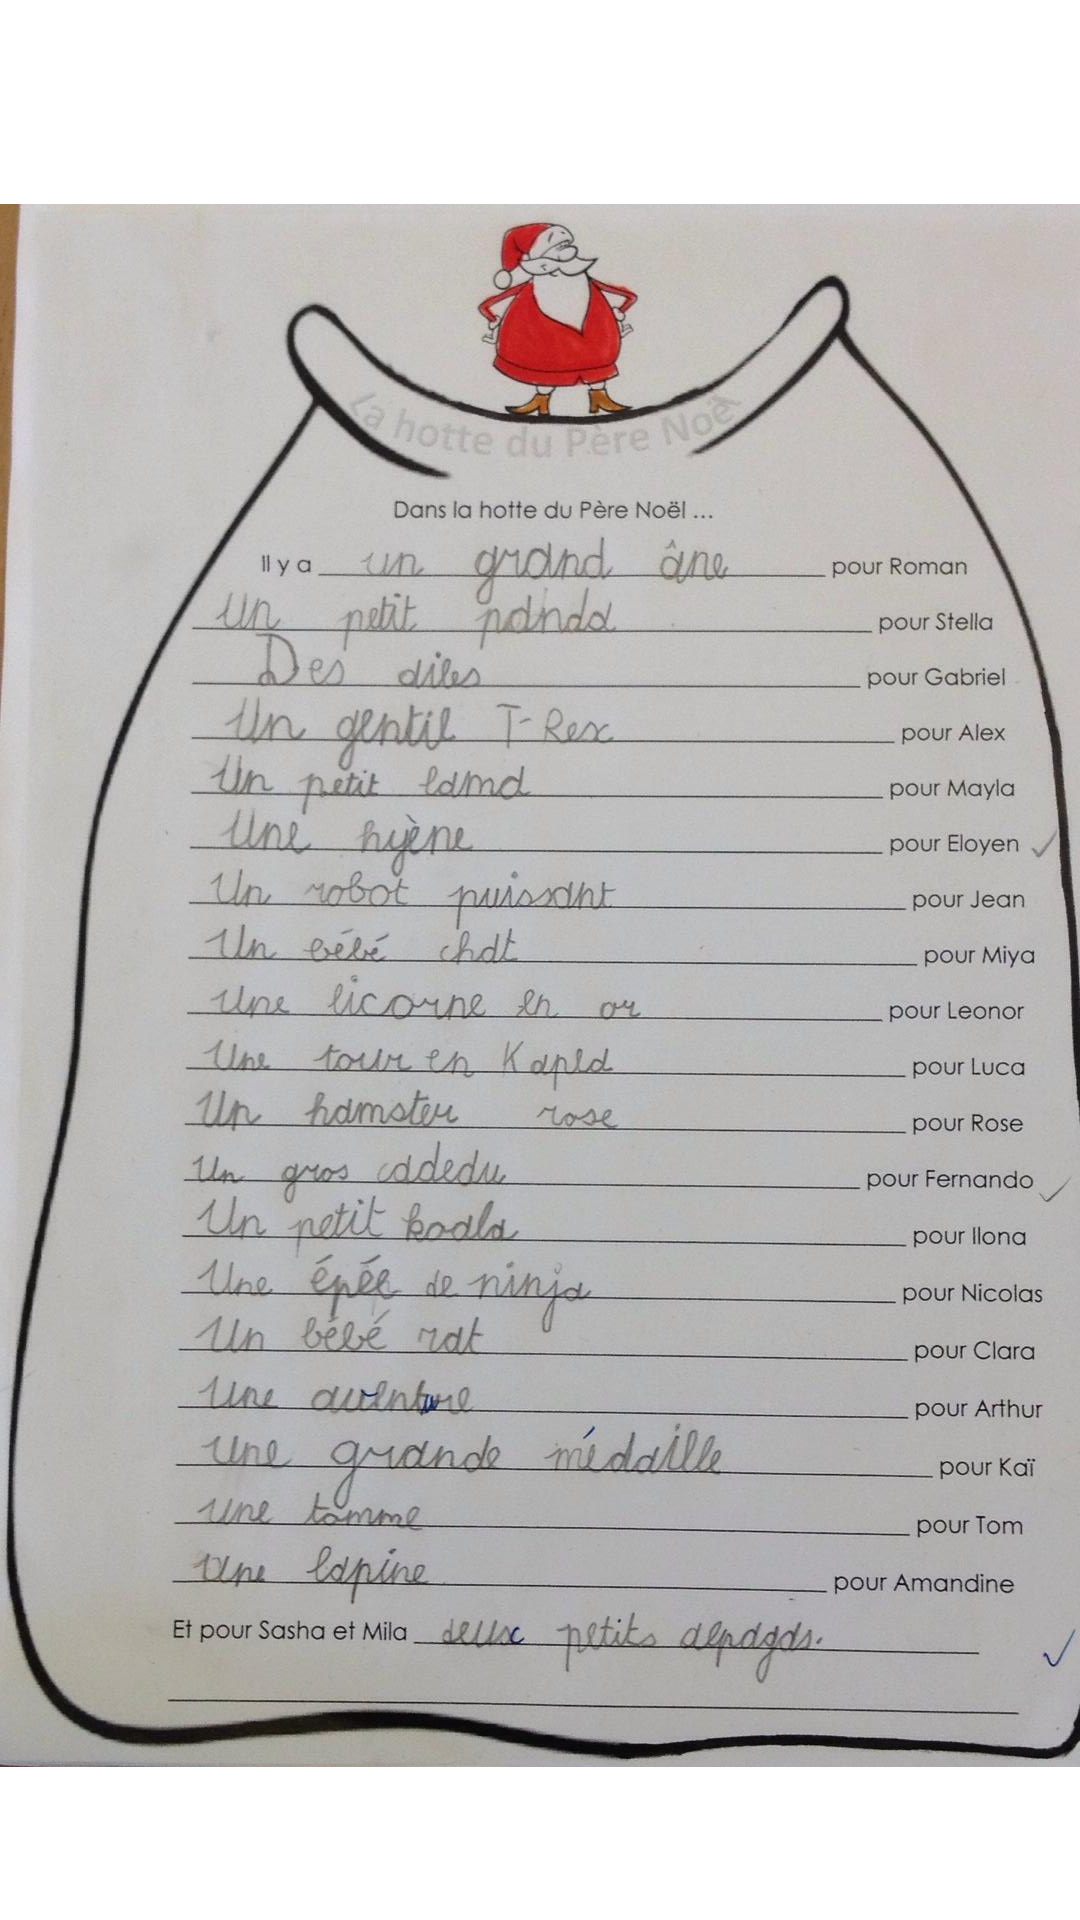 La hotte du Père Noël
Dans la hotte du Père Noël ...
Il y a un grand âne pour Roman
Un petit panda pour Stella
Des ailes pour Gabriel
Un gentil T-Rex pour Alex
Un petit lama pour Mayla
Une hyène pour Eloyen
Un robot puissant pour Jean
Un bébé chat pour Miya
Une licorne en or pour Leonor
Une tour en Kapla pour Luca
Un hamster rose pour Rose
Un gros cadeau pour Fernando
Un petit koala pour Ilona
Une épée de ninja pour Nicolas
Un bébé rat pour Clara
Une aventure pour Arthur
Une grande médaille pour Kaï
Une tomme pour Tom
Une lapine pour Amandine
Et pour Sasha et Mila deux petits alpagas.